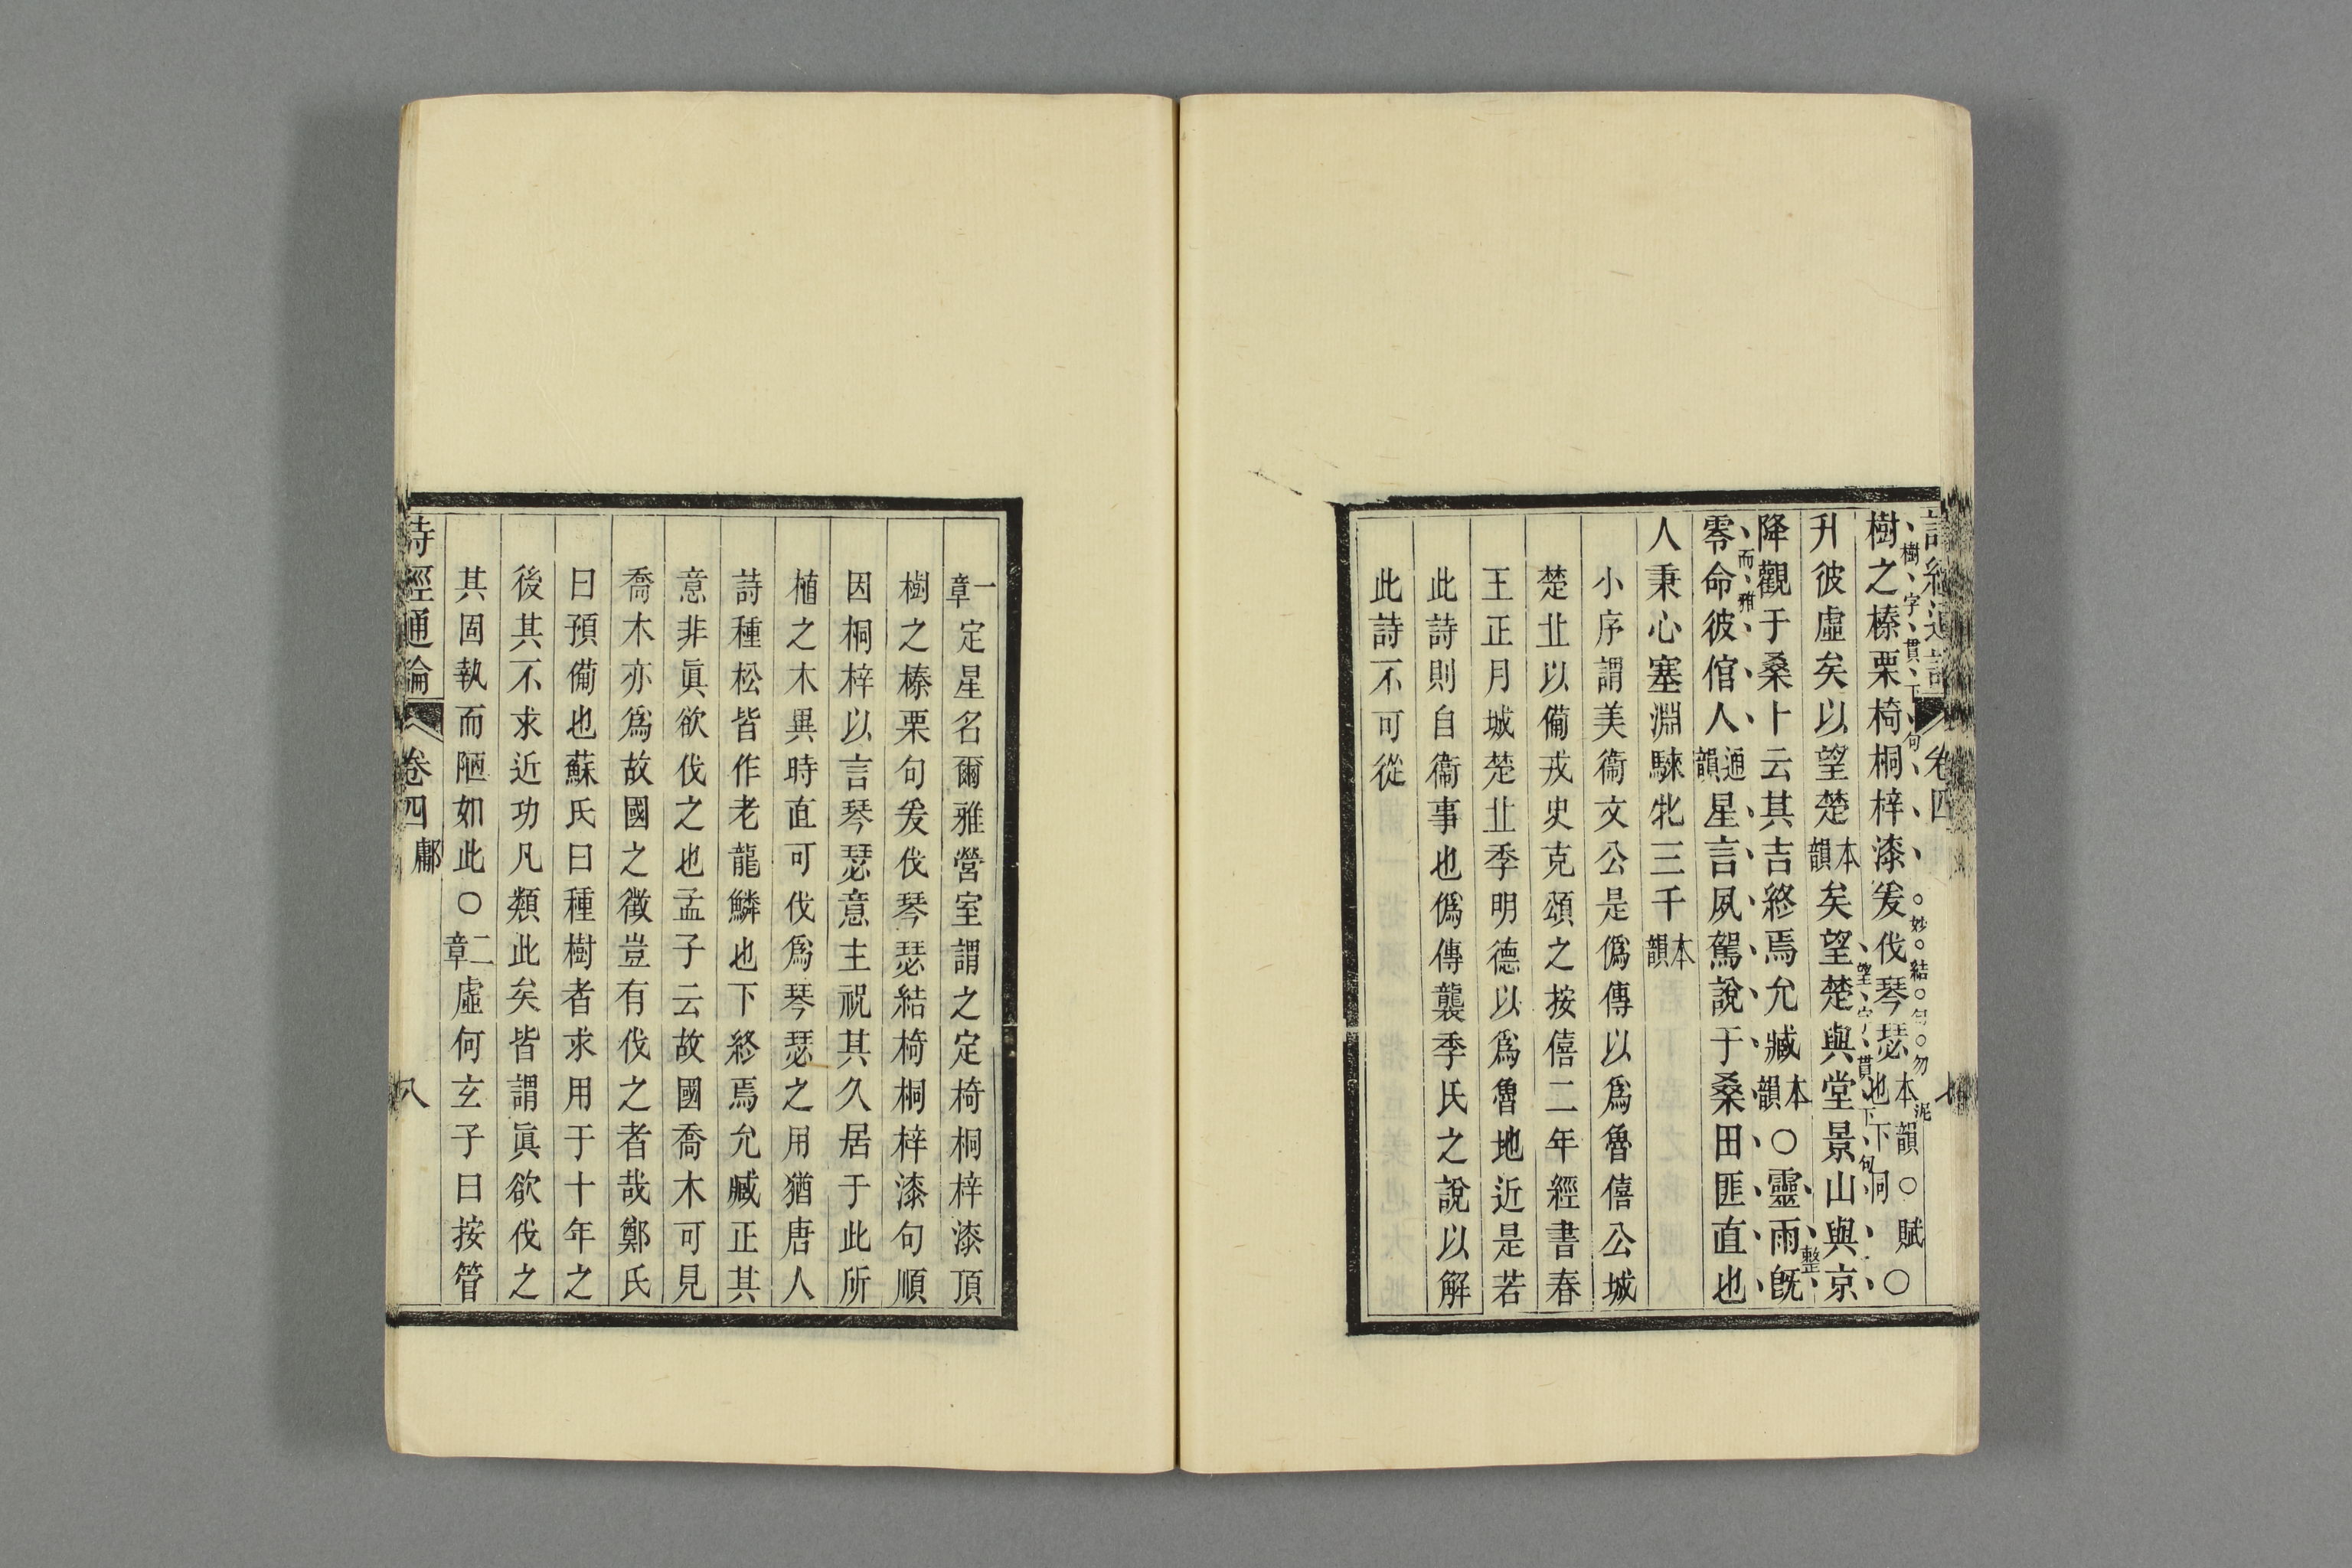 樹之榛栗椅桐梓漆爰伐琴瑟本韻○賦也下同○
樹字貫下句
妙結句勿泥
升彼虛矣以望楚本韻矣望楚與堂景山與京
望字貫下句
降觀于桑卜云其吉終焉允臧本韻○靈雨旣
整
零命彼倌人通韻星言夙駕說于桑田匪直也
而雅
人秉心塞淵騋牝三千本韻
小序謂美衞文公是僞傳以爲魯僖公城
楚丠以備戎史克頌之按僖二年經書春
王正月城楚丠季明德以爲魯地近是若
此詩則自衞事也僞傳襲季氏之說以解
此詩不可從
卷四
一章定星名爾雅營室謂之定椅桐梓漆頂
樹之榛栗句爰伐琴瑟結椅桐梓漆句順
因桐梓以言琴瑟意主祝其久居于此所
植之木異時直可伐爲琴瑟之用猶唐人
詩種松皆作老龍鱗也下終焉允臧正其
意非眞欲伐之也孟子云故國喬木可見
喬木亦爲故國之徵豈有伐之者哉鄭氏
曰預備也蘇氏曰種樹者求用于十年之
後其不求近功凡類此矣皆謂眞欲伐之
其固執而陋如此○二章虛何玄子曰按管
詩經通論 卷四 鄘 八